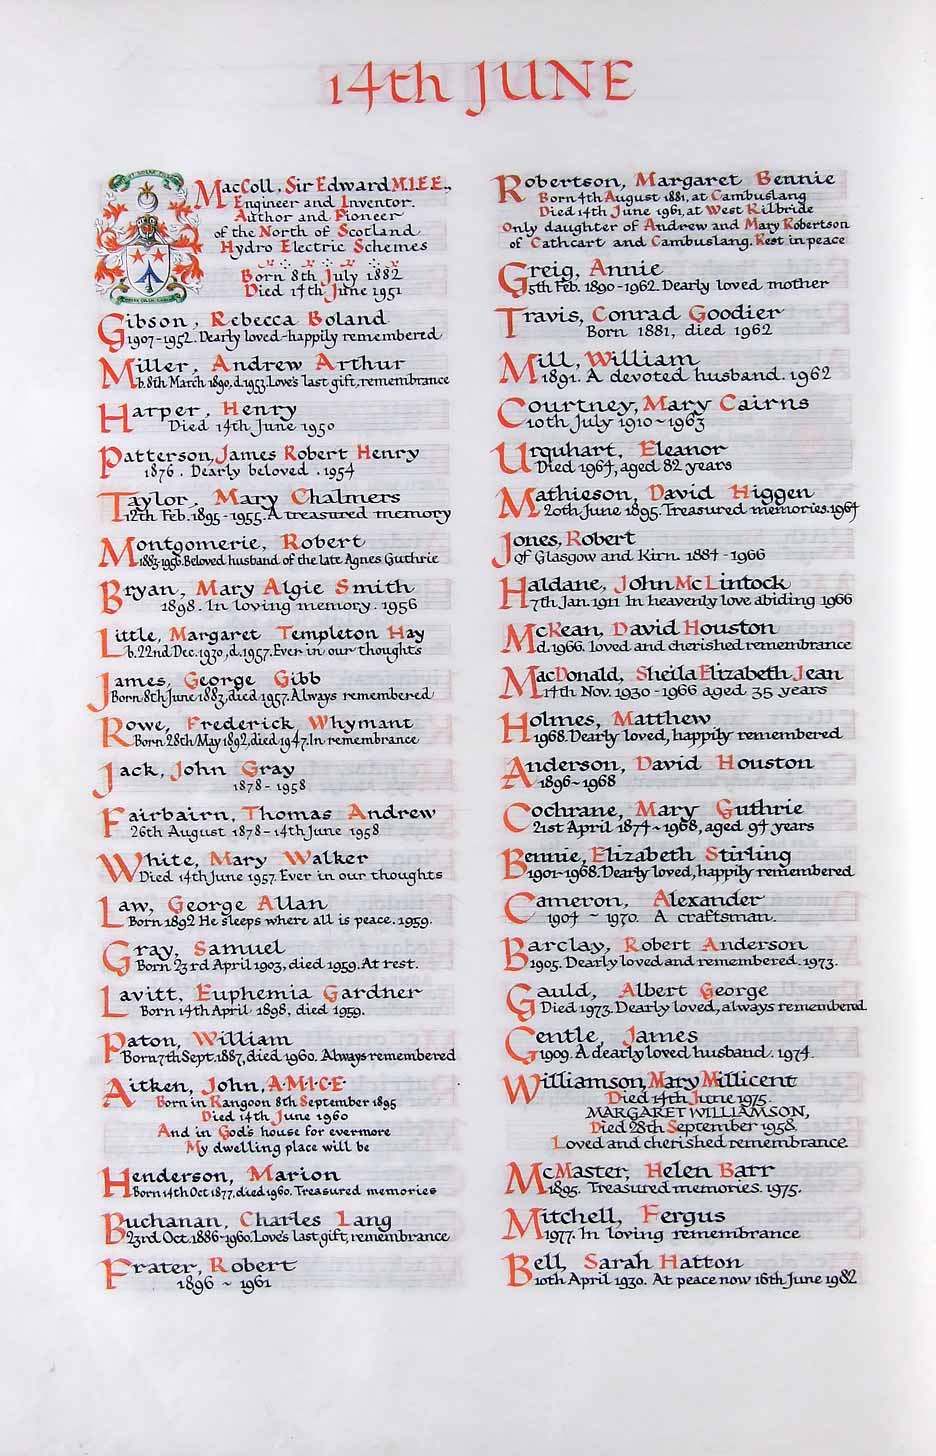 14th JUNE
MacColl, Sir Edward M.I.E.E.,
Engineer and Inventor.
Author and Pioneer
of the North of Scotland
Hydro Electric Schemes
Born 8th July 1882
Died 14th June 1951
Gibson, Rebecca Boland
1907-1952. Dearly loved-happily remembered
Miller, Andrew Arthur
b. 8th March 1890, d.1953. Love's last gift, remembrance
Harper, Henry
Died 14th June 1950
Patterson, James Robert Henry
1876. Dearly beloved. 1954
Taylor, Mary Chalmers
12th Feb. 1895-1955. A treasured memory
Montgomerie, Robert
1883-1956. Beloved husband of the late Agnes Guthrie
Bryan, Mary Algie Smith
1898. In loving memory. 1956
Little, Margaret Templeton Hay
b. 22nd Dec. 1930, d. 1957. Ever in our thoughts
James, George Gibb
Born 8th June 1883, died 1957. Always remembered
Rowe, Frederick Whymant
Born 28th May 1892, died 1947. In remembrance
Jack, John Gray
1878-1958
Fairbairn, Thomas Andrew
26th August 1878-14th June 1958
White, Mary Walker
Died 14th June 1957. Ever in our thoughts
Law, George Allan
Born 1892 He sleeps where all is peace. 1959.
Gray, Samuel
Born 23rd April 1903, died 1959. At rest.
Lavitt, Euphemia Gardner
Born 14th April 1898, died 1959.
Paton, William
Born 7th Sept. 1887, died 1960. Always remembered
Aitken, John, A.M.I.C.E.
Born in Rangoon 8th September 1895
Died 14th June 1960
And in God's house for evermore
My dwelling place will be
Henderson, Marion
Born 14th Oct 1877, died 1960. Treasured memories
Buchanan, Charles Lang
23rd Oct. 1886-1960. Love's last gift, remembrance
Frater, Robert
1896 ~ 1961
Robertson, Margaret Bennie
Born 4th August 1881, at Cambuslang
Died 14th June 1961, at West Kilbride
Only daughter of Andrew and Mary Robertson
of Cathcart and Cambuslang. Rest in peace
Greig, Annie
5th Feb. 1890-1962. Dearly loved mother
Travis, Conrad Goodier
Born 1881, died 1962
Mill, William
1891. A devoted husband. 1962
Courtney, Mary Cairns
10th July 1910~1963
Urquhart, Eleanor
Died 1964, aged 82 years
Mathieson, David Higgen
20th June 1895. Treasured memories. 1964
Jones, Robert
of Glasgow and Kirn. 1884-1966
Haldane, John McLintock
7th Jan. 1911 In heavenly love abiding 1966
McKean, David Houston
d. 1966. loved and cherished remembrance
MacDonald, Sheila Elizabeth Jean
14th Nov. 1930-1966 aged 35 years
Holmes, Matthew
1968. Dearly loved, happily remembered
Anderson, David Houston
1896~1968
Cochrane, Mary Guthrie
21st April 1874~1968, aged 94 years
Bennie, Elizabeth Stirling
1901-1968. Dearly loved, happily remembered
Cameron, Alexander
1904 ~ 1970. A craftsman.
Barclay, Robert Anderson
1905. Dearly loved and remembered. 1973.
Gauld, Albert George
Died 1973. Dearly loved, always remembered.
Gentle, James
1909. A dearly loved husband. 1974.
Williamson, Mary Millicent
Died 14th June 1975.
MARGARET WILLIAMSON,
Died 28th September 1958.
Loved and cherished remembrance.
McMaster, Helen Barr
1895. Treasured memories. 1975.
Mitchell, Fergus
1977. In loving remembrance
Bell, Sarah Hatton
10th April 1930. At peace now 16th June 1982